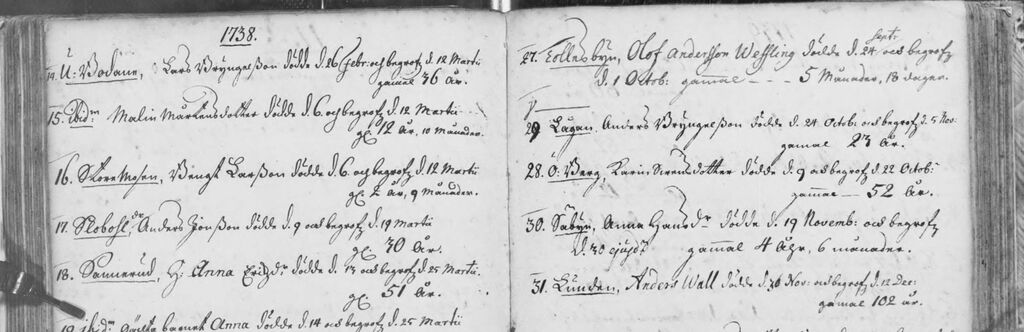 1738.
14. U: Bodane, Lars Bryngelsson dödde d. 26 Febr: och begrofz d. 12 Martii
gamal 36 År.
15. ibidm Malin Mårtensdotter dödde d. 6. och begrofz d. 12 Martii
gl 12 År, 10 månader.
16. Skoremosen, Bengt Larsson dödde d. 6 och begrofz d. 12 Martii
gl. 2 År, 9 Månader.
17. Anders Jonsson dödde d. 9 och begrofz d. 19 Martii
gl 30 År.
18. Sannerud, H. Anna Erichzdr dödde d. 13 och begrofz d. 25 Martii.
gl 51 År.
19. ibidm barnet Anna dödde d. 14 och begrofz d. 25 Martii
27. Tollesbyn, Olof Andersson Wessling dödde d. 24 Sept. och begrofz
d. 1 Octob: gammal - - - 5 Månader, 18 dagar.
29 Lågan. Anders Bryngelsson dödde d. 24 Octob: och begrofz d. 5 Nov:
gamal 23 År.
28. O: Berg. Karin Svensdotter dödde d. 9 och begrofz d. 22 Octob:
gammal 52 År.
30. Säbyn, Anna Hansdr dödde d. 19 Novemb: och begrofz
d. 30 ejusd: gammal 4 Åhr, 6 månader.
31. Lunden, Anders Wall dödde d. 30 Nov: och begrof: d. 12 Dec:
gamal 102 år.